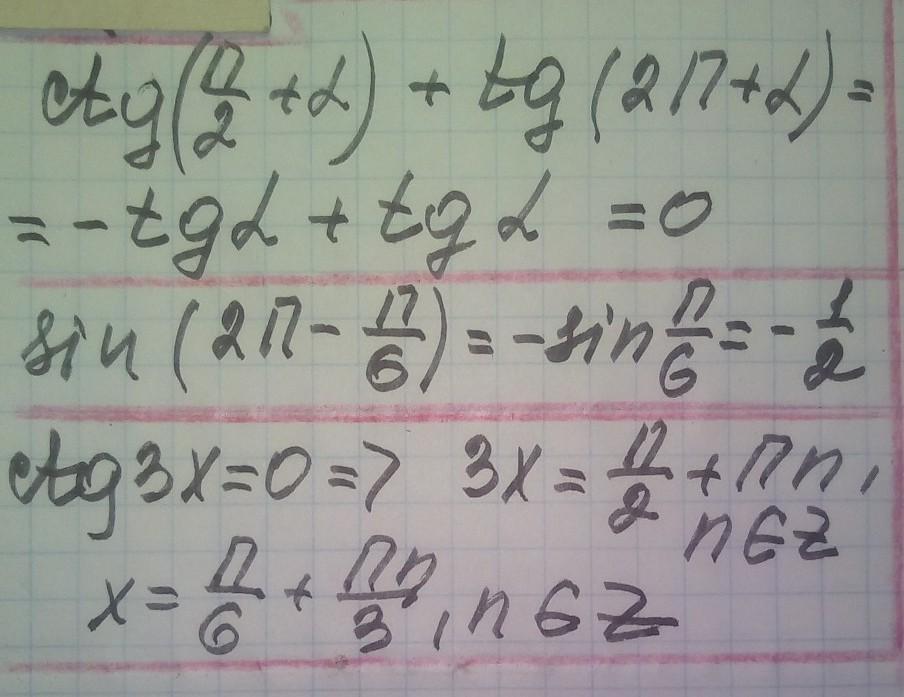 ctg(π/2 + α) + tg(2π + α) =
= -tgα + tgα = 0
sin(2π - π/6) = -sin π/6 = - 1/2
ctg3x = 0 => 3x = π/2 + πn,
n∈Z
x = π/6 + πn/3, n∈Z